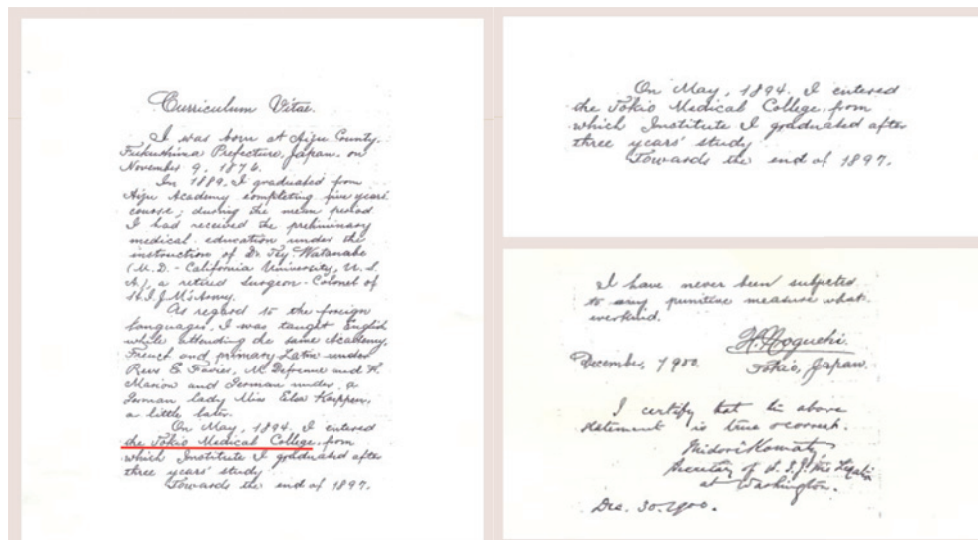 Curriculum Vitae.
I was born at Aizu County,
Fukushima Prefecture, Japan, on
November 9, 1876.
In 1889, I graduated from
Aizu Academy completing five years'
course; during the mean period
I had received the preliminary
medical education under the
instruction of Dr. Watanabe
(M.D. - California University, U. S.
A.), a retired Surgeon-Colonel of
H. I. J. M's Army.
As regard to the foreign
languages, I was taught English
while attending the same Academy,
French and primary Latin under
Revs E. Favier, M. Defrenne and H.
Marion and German under a
German lady Miss Elsa
a little later.
On May, 1894. I entered
the Tokio Medical College, from
which Institute I graduated after
three years' study.
Towards the end of 1897.
On May, 1894. I entered
the Tokio Medical College, from
which Institute I graduated after
three years' study.
Towards the end of 1897.
I have never been subjected
to any punitive measure what-
everkind.
H. Noguchi.
December, 1900.
Tokio, Japan.
I certify that his above
statement is true & correct.
Midori Komatz,
Secretary of H. I. J. M's Legation
at Washington.
Dec. 30. 1900.